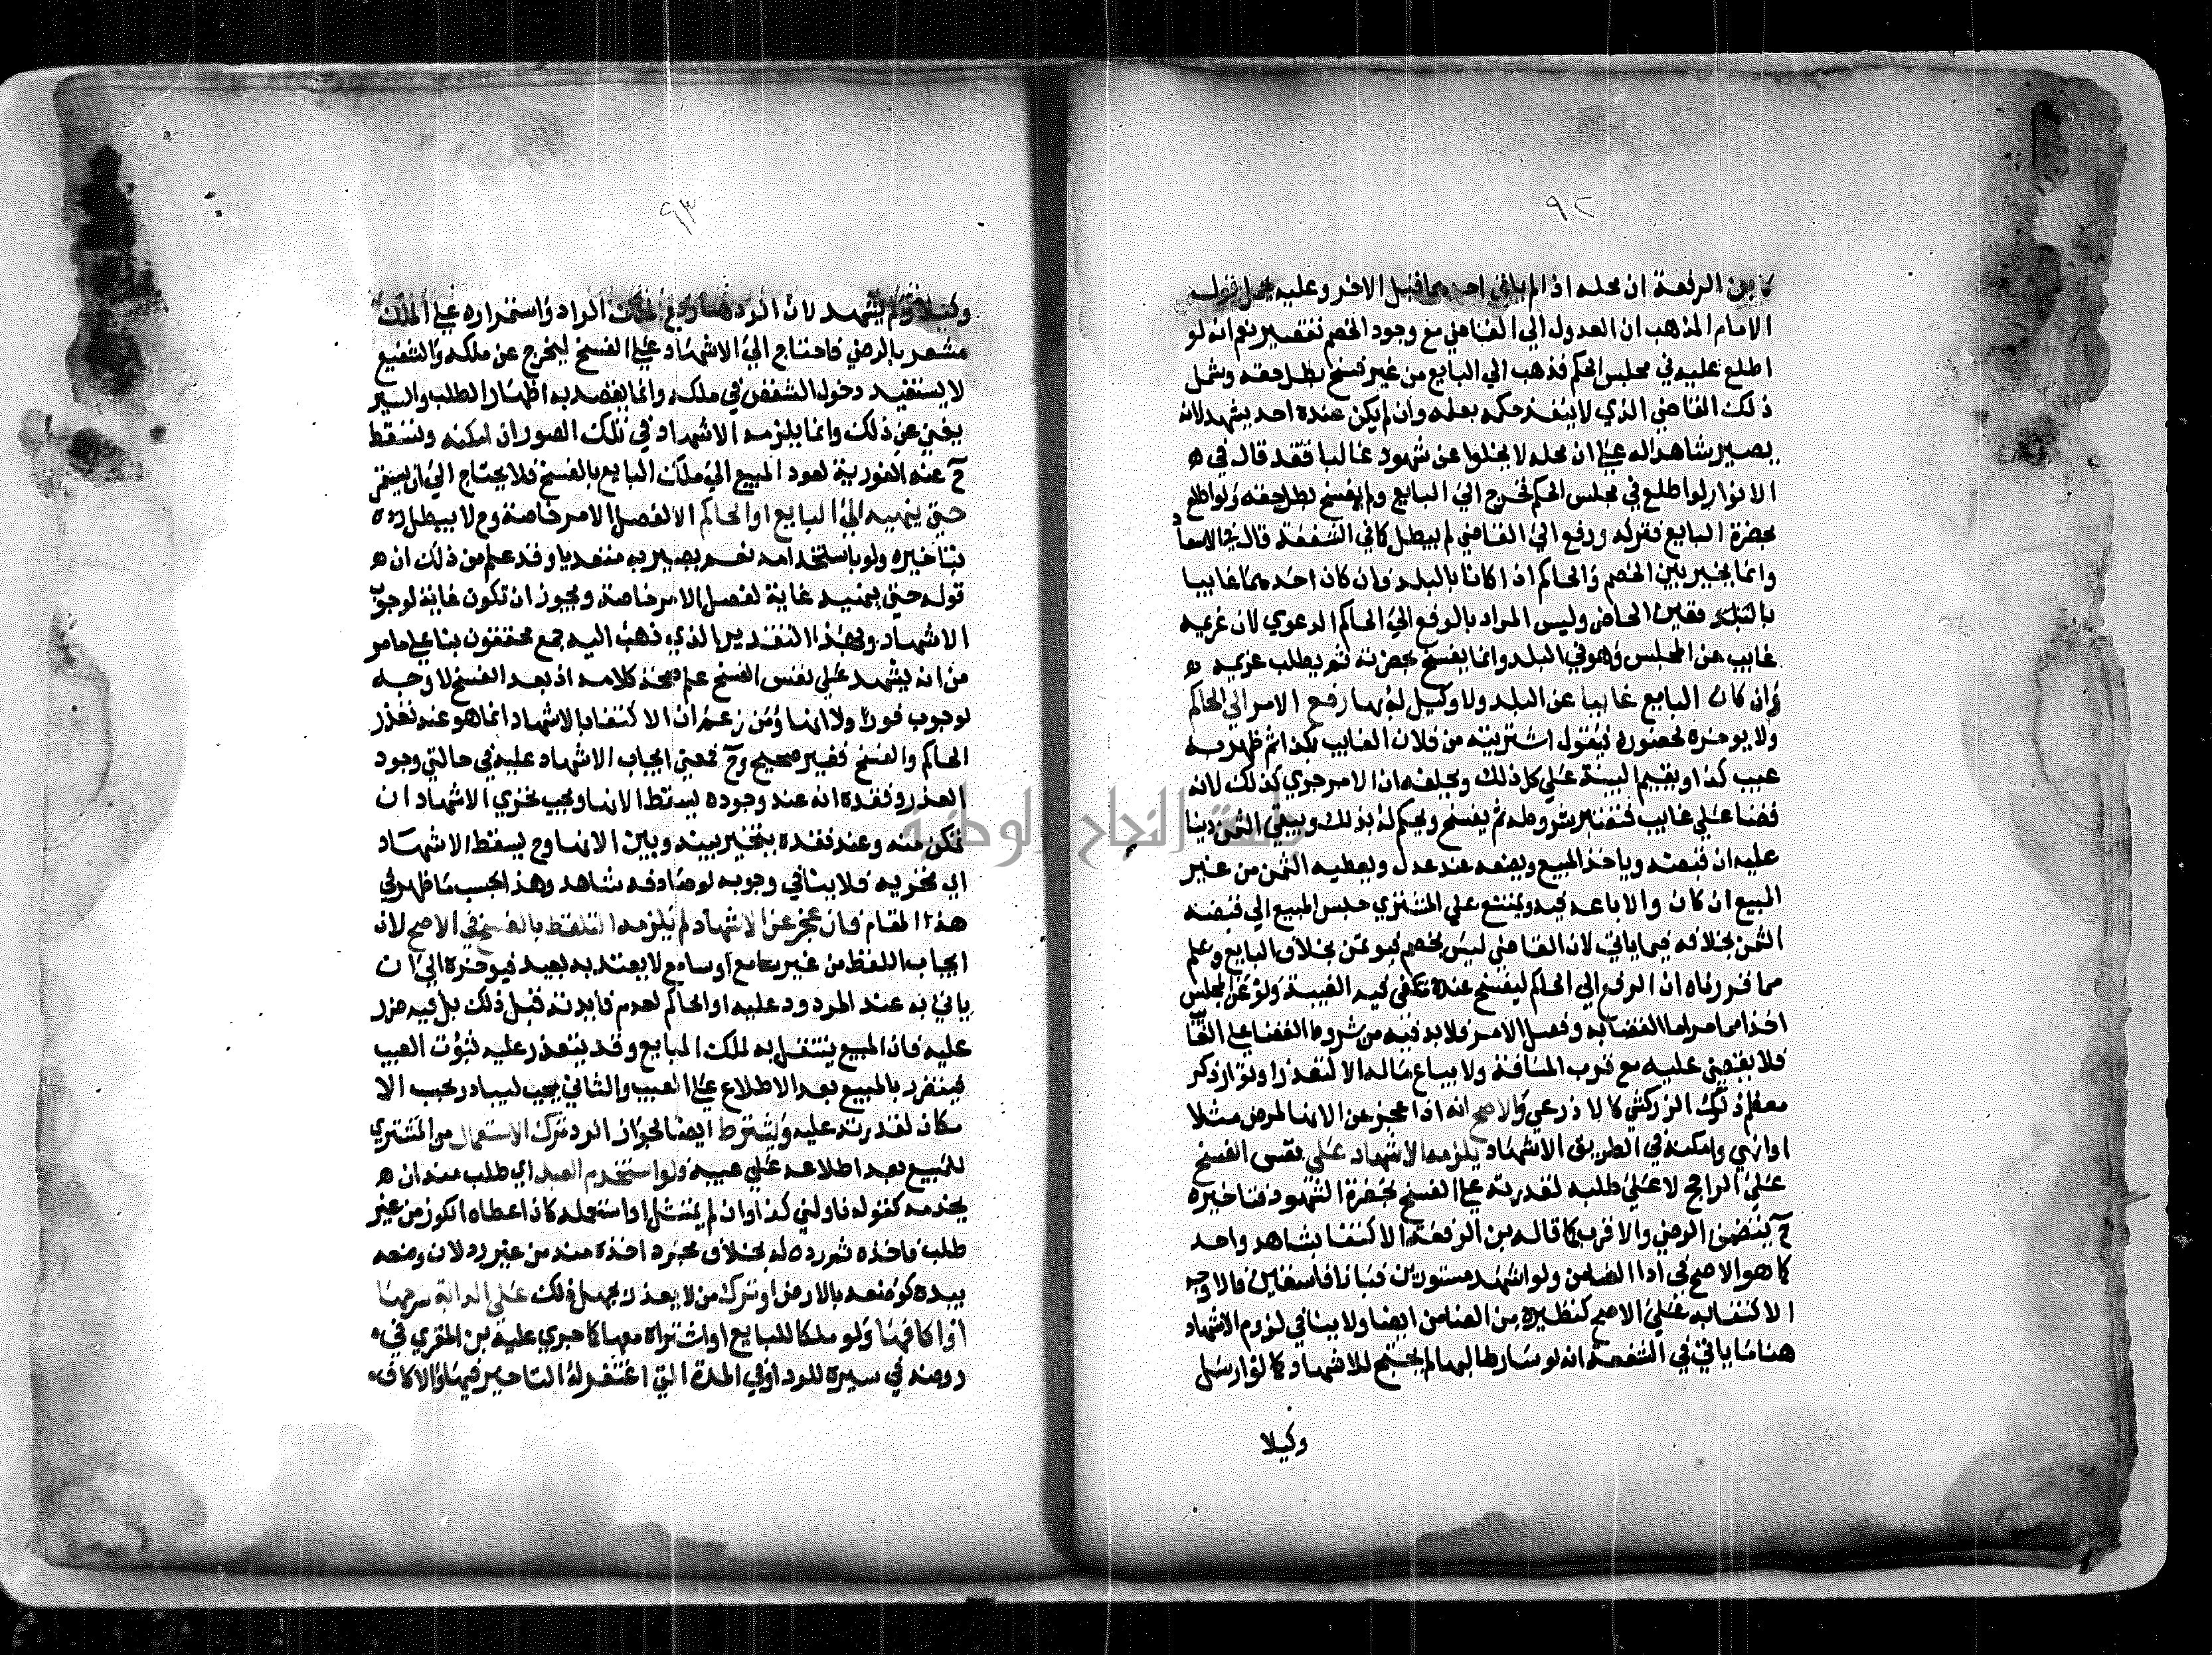 ٩٢
الرفعة ان محله اذا لم احدهما قبل الاخر وعليه يحمل قول
الامام المذهب ان العدول الي القاضي مع وجود الخصم تقصير نعم انه لو
اطلع عليه في مجلس الحكم فذهب الي البايع من غير فسخ بطل حقه وشمل
ذلك القاضي الذي لا ينفذ حكمه بعلمه وان لم يكن عنده احد يشهد لانه
يصير شاهدا له علي ان محله لا يخلوا عن شهود غالبا فقد قال في ه
الانوار لو اطلع في مجلس الحكم فخرج الي البايع ولم يفسخ بطل حقه ولو اطلع
بحضرة البايع فتركه ورفع الي القاضي لم يبطل كما في الشفعة قال في الاسعاد
وانما يخير بين الخصم والحاكم اذا كانا بالبلد فان كان احدهما غايبا
بالبلد فقين الحاضر وليس المراد بالرفع الي الحاكم الدعوي لان غريمه
غايب عن المجلس وهو في البلد وانما يفسخ بحضرته ثم يطلب غريمه ه
وان كان البايع غايبا عن البلد ولا وكيل له بها رفع الامر الي الحاكم
ولا يوخره لحضوره فيقول اشتريته من فلان الغايب بكذا ثم ظهر به
عيب كذا ويقيم البينة علي كل ذلك ويحلفه ان الامر جري كذلك لانه
قضا علي غايب فتعتبر شروطه ثم يفسخ ويحكم له بذلك ويبقي الثمن دينا
عليه ان قبضه وياخذ المبيع ويضعه عند عدل ويعطيه الثمن من غير
المبيع ان كان والا باعه فيه ويمتنع علي المشتري حبس المبيع الي قبضه
الثمن بخلافه فيما ياتي لان القاضي ليس بخصم فيوتمن بخلاف البايع وعلم
مما قررناه ان الرفع الي الحاكم ليفسخ عنده تكفي فيه الغيبة ولو عن المجلس
اخذا مما مر اما القضا به وفصل الامر فلا بد فيه من شروط القضا علي الغا
فلا يقضي عليه مع قرب المسافة ولا يباع ماله الا لتعذر او توار ذكر
معظم ذلك الزركشي كالاذرعي والاصح انه اذا عجز عن الانها لمرض مثلا
او انهي وامكنه في الطريق الاشهاد يلزمه الاشهاد علي نفس الفسخ
علي الراجح لا علي طلبه لقدرته علي الفسخ بحضرة الشهود فتاخيره
ح يتضمن الرضي والاقرب كما قاله بن الرفعة الاكتفا بشاهد واحد
كما هو الاصح في ادا الضامن ولو اشهد مستورين فبانا فاسقين فالاوجه
الاكتفا به علي الاصح كنظيره من الضامن ايضا ولا ينافي لزوم الاشهاد
هنا ما ياتي في الشفعة انه لو سار طالبها لم يحتج للاشهاد كما لو ارسل
وكيلا
٩٣
وكيلا ولم يشهد لان الرد هنا رفع لملك الراد واستمراره علي الملك
مشعر بالرضي فاحتاج الي الاشهاد علي الفسخ ليخرج عن ملكه والشفيع
لا يستفيد دخول الشقص في ملكه وانما يقصد به اظهار الطلب والسير
يغني عن ذلك وانما يلزمه الاشهاد في تلك الصور ان امكنه وتسقط
ح عنه الفورية لعود المبيع الي ملك البايع بالفسخ فلا يحتاج الي ان يستمر
حتي ينهيه الي البايع او الحاكم الا لفصل الامر خاصة وح لا يبطل رده
بتاخيره ولو باستخدامه نعم يصير به متعديا وقد علم من ذلك ان ه
قوله حتي ينهيه غاية لفصل الامر خاصة ويجوز ان تكون غاية لوجوب
الاشهاد وبهذا التقدير الذي ذهب اليه جمع محققون بنا علي ما مر
من انه يشهد علي نفس الفسخ علم صحة كلامه اذ بعد الفسخ لا وجه
لوجوب فور ولا انها ومن زعم ان الاكتفا بالاشهاد انما هو عند تعذر
الحاكم والفسخ فغير صحيح وح فمعني ايجاب الاشهاد عليه في حالتي وجود
العذر وفقده انه عند وجوده يسقط الانها ويجب تحري الاشهاد ان
تمكن منه وعند فقده يتخير بينه وبين الانها وح يسقط الاشهاد
اي تحريه فلا ينافي وجوبه لو صادفه شاهد وهذا بحسب ما ظهر لي
هذا المقام فان عجز عن الاشهاد لم يلزمه التلفظ بالفسخ في الاصح لان
ايجاب اللفظ من غير سامع او سامع لا يعتد به بعيد فيوخره الي ان
ياتي به عند المردود عليه او الحاكم لعدم فايدته قبل ذلك بل فيه ضرر
عليه فان المبيع ينتقل به لملك البايع وقد يتعذر عليه ثبوت العيب
فيتضرر بالمبيع بعد الاطلاع علي العيب والثاني يجب ليبادر بحسب الا
مكان لقدرته عليه ويشترط ايضا لجواز الرد ترك الاستعمال من المشتري
للمبيع بعد اطلاعه علي عيبه ولو استخدم العبد اي طلب منه ان ه
يخدمه كقوله ناولني كذا وان لم يمتثل او استعمله كان اعطاه الكوز من غير
طلب فاخذه ثم رده له بخلاف مجرد اخذه منه من غير رد لان وضعه
بيده كوضعه بالارض او ترك من لا يعذر بجهل ذلك علي الدابة سرجها
او اكافها ولو ملكا للبايع او اشتراه معها كما جري عليه بن المقري في
روضه في سيره للرد او في المدة التي اغتفر له التاخير فيها والاكاف